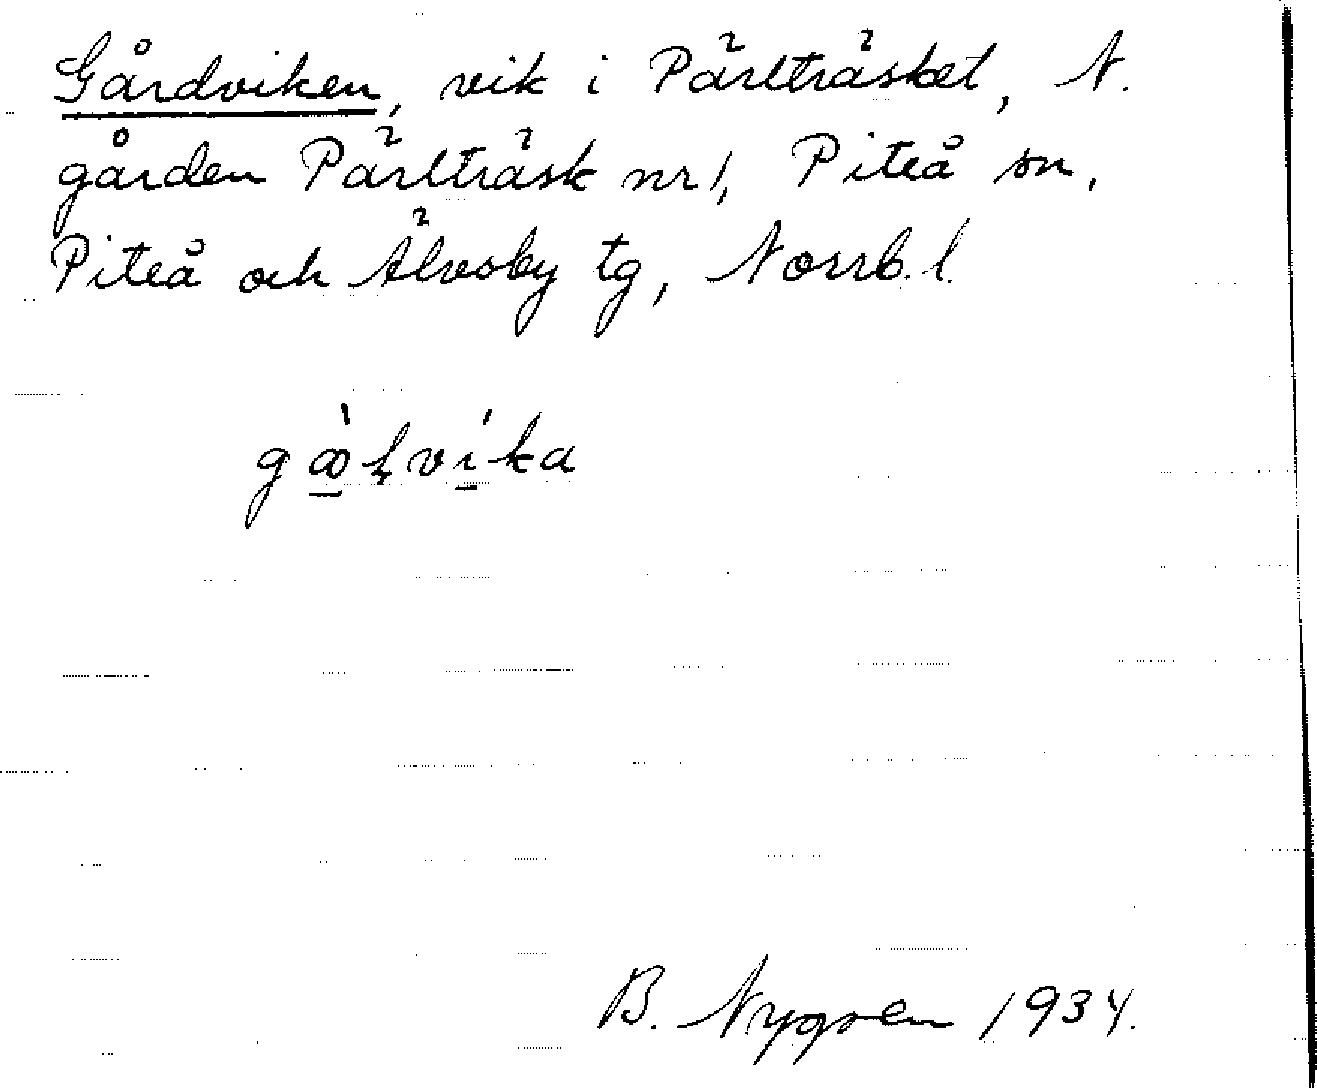 Gårdviken, vik i Pärlträsket, N.
gården Pärlträsk nr 1, Piteå sn,
Piteå och Älvsby tg, Norrb. l.
B. Nygren 1934.